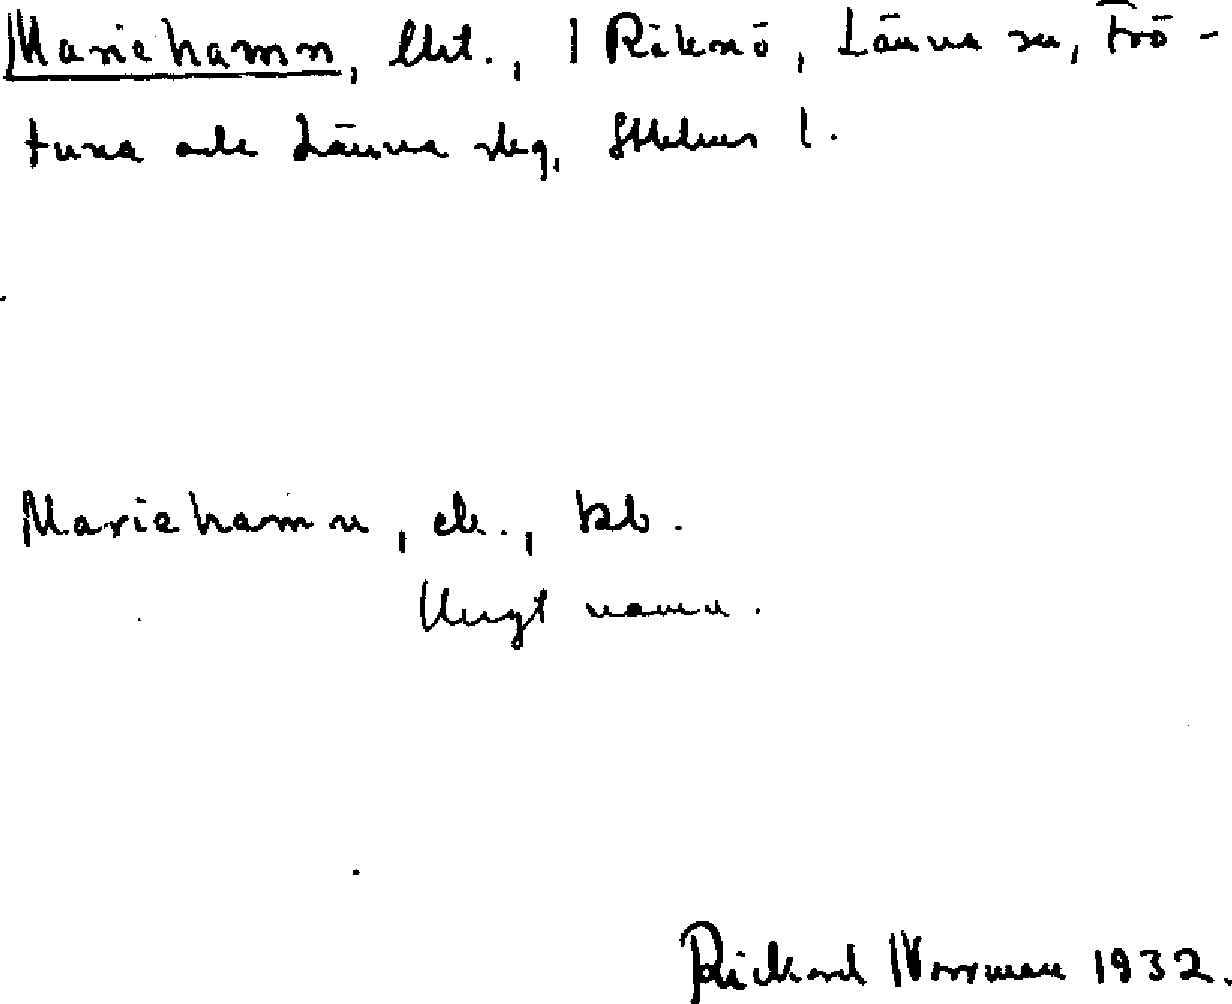 Mariehamn, lht., 1 Riknö, Länna sn, Frö-
tuna och Länna slg, Sthlms l.
Mariehamn, kb.
Ungt namn.
Rickard Norrman 1932.